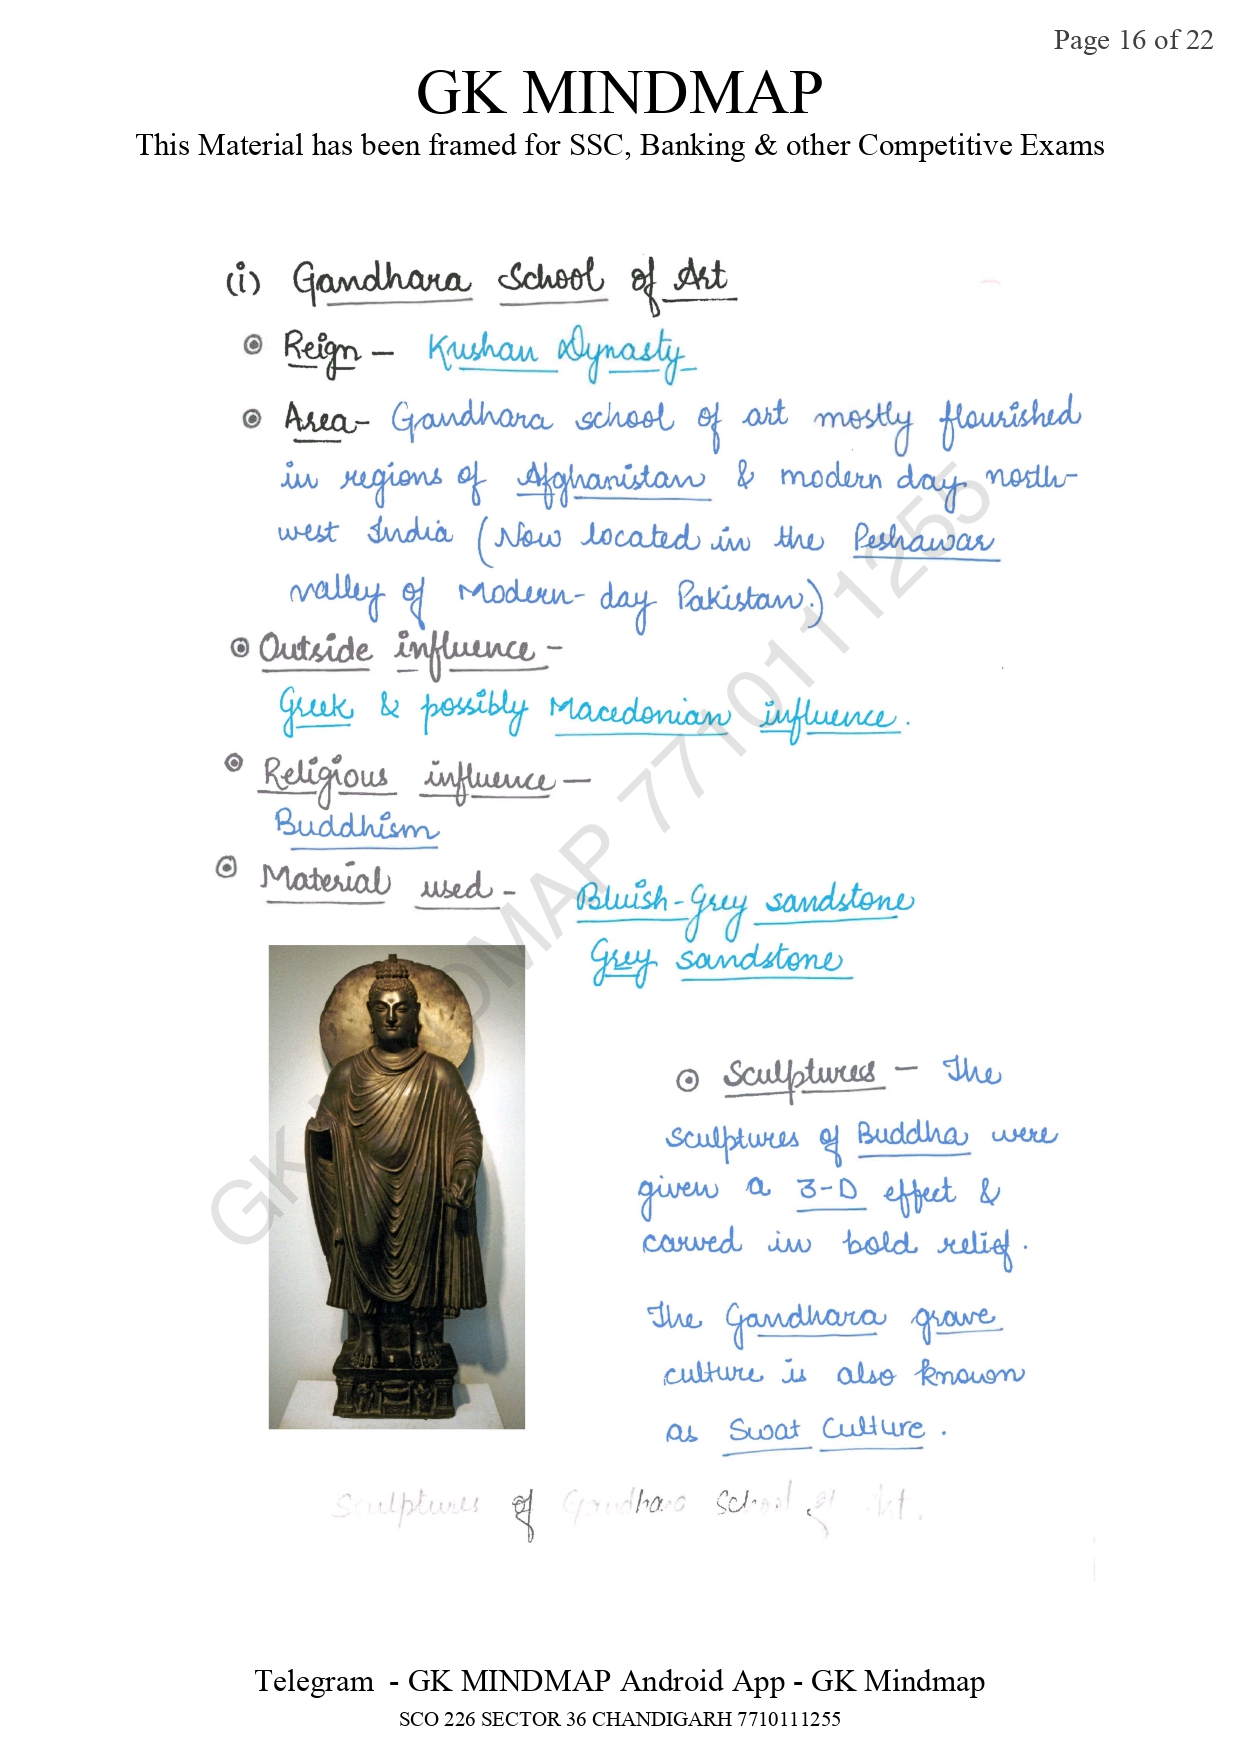 Page 16 of 22
GK MINDMAP
This Material has been framed for SSC, Banking & other Competitive Exams
(i) Gandhara School of Art
Reign - Kushan Dynasty
Area- Gandhara school of art mostly flourished
in regions of Afghanistan & modern day north-
west India (Now located in the Peshawar
valley of Modern-day Pakistan.)
Outside influence -
Greek & possibly Macedonian influence.
Religious influence -
Buddhism
Material used - Bluish-Grey sandstone
Grey sandstone
Sculptures - The
sculptures of Buddha were
given a 3-D effect &
carved in bold relief.
The Gandhara grave
culture is also known
as Swat Culture.
Sculptures of Gandhara School of Art.
GK MINDMAP 7710111255
Telegram - GK MINDMAP Android App - GK Mindmap
SCO 226 SECTOR 36 CHANDIGARH 7710111255